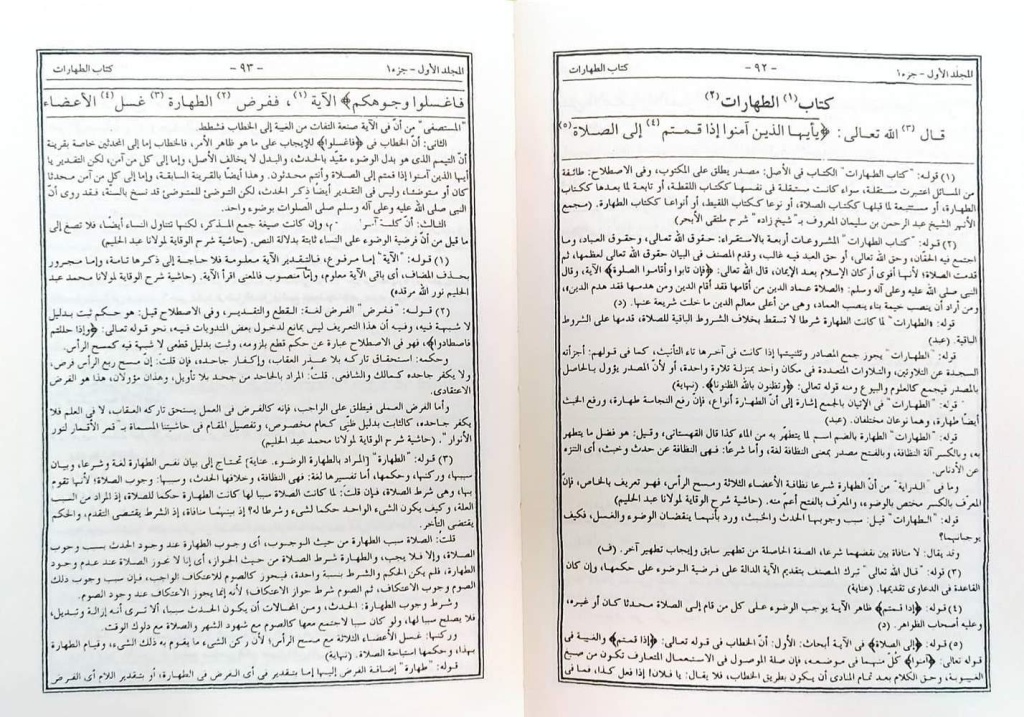 المجلد الأول - جزء١ - ٩٢ - كتاب الطهارات
كتاب (١) الطهارات (٢)
قال (٣) الله تعالى: ﴿يأيها الذين آمنوا إذا قمتم (٤) إلى الصلاة (٥)
(١) قوله: "كتاب الطهارات" الكتاب فى الأصل: مصدر يطلق على المكتوب، وفى الاصطلاح: طائفة
من المسائل اعتبرت مستقلة، سواء كانت مستقلة فى نفسها ككتاب اللقطة، أو تابعة لما بعدها ككتاب
الطهارة، أو مستتبعة لما قبلها ككتاب الصلاة، أو نوعا ككتاب اللقيط، أو أنواعا ككتاب الطهارة. (مجمع
الأنهر الشيخ عبد الرحمن بن سليمان المعروف بـ"شيخ زاده" شرح ملتقى الأبحر)
(٢) قوله: "كتاب الطهارات" المشروعات أربعة بالاستقراء: حقوق الله تعالى، وحقوق العباد، وما
اجتمع فيه الحقان، وحق الله تعالى، أو حق العبد فيه غالب، وقدم المصنف فى البيان حقوق الله تعالى لعظمها، ثم
قدمت الصلاة؛ لأنها أقوى أركان الإسلام بعد الإيمان، قال الله تعالى: ﴿فإن تابوا وأقاموا الصلوة﴾ الآية، وقال
النبى صلى الله عليه وعلى آله وسلم: «الصلاة عماد الدين من أقامها فقد أقام الدين ومن هدمها فقد هدم الدين»،
ومن أراد أن ينصب خيمة بناء بنصب العماد، وهى من أعلى معالم الدين ما خلت شريعة عنها. (د)
قوله: «الطهارات" لما كانت الطهارة شرطا لا تسقط بخلاف الشروط الباقية للصلاة، قدمها على الشروط
الباقية. (عبد)
قوله: "الطهارات" يجوز جمع المصادر وتثنيتها إذا كانت فى آخرها تاء التأنيث، كما فى قولهم: أجزأته
السجدة عن التلاوتين، والتلاوات المتعددة فى مكان واحد بمنزلة تلاوة واحدة، أو لأن المصدر يؤول بالحاصل
بالمصدر فيجمع كالعلوم والبيوع ومنه قوله تعالى: ﴿وتظنون بالله الظنونا﴾. (نهاية)
قوله: "الطهارات" فى الإتيان بالجمع إشارة إلى أن الطهارة أنواع، فإن رفع النجاسة طهارة، ورفع الخبث
أيضًا طهارة، وهما نوعان مختلفان. (عبد)
قوله: "الطهارات" الطهارة بالضم اسم لما يتطهر به من الماء كذا قال القهستانى، وقيل: هو فضل ما يتطهر
به، وبالكسر آلة النظافة، وبالفتح مصدر بمعنى النظافة لغة، وأما شرعًا: فهى النظافة عن حدث وخبث، أى التنزه
عن الأدناس.
وما فى "الدراية" من أنّ الطهارة شرعا نظافة الأعضاء الثلاثة ومسح الرأس، فهو تعريف بالخاص، فإنّ
المعرف بالكسر مختص بالوضوء، والمعرف بالفتح أعم منه. (حاشية شرح الوقاية لمولانا عبد الحليم)
قوله: "الطهارات" قيل: سبب وجوبها الحدث والخبث، ورد بأنهما ينقضان الوضوء والغسل، فكيف
يوجبانهما؟
وقد يقال: لا منافاة بين نقضهما شرعا، الصفة الحاصلة من تطهير سابق وإيجاب تطهير آخر. (ف)
(٣) قوله: "قال الله تعالى" تبرك المصنف بتقديم الآية الدالة على فرضية الوضوء على حكمها، وإن كان
القاعدة فى الدعاوى تقديمها. (عناية)
(٤) قوله: ﴿إذا قمتم﴾ ظاهر الآية يوجب الوضوء على كل من قام إلى الصلاة محدثا كان أو غيره،
وعليه أصحاب الظواهر. (د)
(٥) قوله: ﴿إلى الصلاة﴾ فى الآية أبحاث: الأول: أنّ الخطاب فى قوله تعالى: ﴿إذا قمتم﴾ والغيبة فى
قوله تعالى: ﴿آمنوا﴾ كلّ منهما فى موضعه، فإن صلة الموصول فى الاستعمال المتعارف تكون من صيغ
الغيوبة، وحق الكلام بعد تمام المنادى أن يكون بطريق الخطاب، فلا يقال: يا فلان! إذا فعل كذا، فما فى
المجلد الأول - جزء١ - ٩٣ - كتاب الطهارات
فاغسلوا وجوهكم﴾ الآية (١)، ففرض (٢) الطهارة (٣) غسل (٤) الأعضاء
"المستصفى" من أنّ فى الآية صنعة التفات من الغيبة إلى الخطاب فشطط.
الثانى: أنّ الخطاب فى ﴿فاغسلوا﴾ للإيجاب على ما هو ظاهر الأمر، فالخطاب إما إلى المحدثين خاصة بقرينة
أنّ التيمم الذى هو بدل الوضوء مقيد بالحدث، والبدل لا يخالف الأصل، وإما إلى كل من آمن، لكن التقدير يا
أيها الذين آمنوا إذا قمتم إلى الصلاة وأنتم محدثون. وهذا أيضًا بالقرينة السابقة، وإما إلى كل من آمن محدثا
كان أو متوضئا، وليس فى التقدير أيضًا ذكر الحدث، لكن التوضئ للمتوضئ قد نسخ بالسنّة، فقد روى أنّ
النبى صلى الله عليه وعلى آله وسلم صلى الصلوات بوضوء واحد.
الثالث: أن كلمة وإن كانت صيغة جمع المذكر، لكنها تتناول النساء أيضًا، فلا تصغ إلى
ما قيل من أنّ فرضية الوضوء على النساء ثابتة بدلالة النص. (حاشية شرح الوقاية لمولانا عبد الحليم)
(١) قوله: "الآية" إما مرفوع، فالتقدير الآية معلومة فلا حاجة إلى ذكرها تامة، وإما مجرور
بحذف المضاف، أى باقى الآية معلوم، وإما منصوب فالمعنى اقرأ الآية. (حاشية شرح الوقاية لمولانا محمد عبد
الحليم نور الله مرقده)
(٢) قوله: "ففرض" الفرض لغة: القطع والتقدير، وفى الاصطلاح قيل: هو حكم ثبت بدليل
لا شبهة فيه، وفيه أن هذا التعريف ليس بمانع لدخول بعض المندوبات فيه، نحو قوله تعالى: ﴿وإذا حللتم
فاصطادوا﴾، فهو فى الاصطلاح عبارة عن حكم قطع بلزومه، وثبت بدليل قطعى لا شبهة فيه كمسح الرأس.
وحكمه: استحقاق تاركه بلا عذر العقاب، وإكفار جاحده، فإن قلت: إنّ مسح ربع الرأس فرض،
ولا يكفر جاحده كمالك والشافعى. قلتُ: المراد بالجاحد من جحد بلا تأويل، وهذان مؤولان، هذا هو الفرض
الاعتقادى.
وأما الفرض العملى فيطلق على الواجب، فإنه كالفرض فى العمل يستحق تاركه العقاب، لا فى العلم فلا
يكفر جاحده، كالثابت بدليل ظنّى كعام مخصوص، وتفصيل المقام فى حاشيتنا المسماة بـ"قمر الأقمار لنور
الأنوار". (حاشية شرح الوقاية لمولانا محمد عبد الحليم)
(٣) قوله: "الطهارة" [المراد بالطهارة الوضوء. عناية] تحتاج إلى بيان نفس الطهارة لغة وشرعا، وبيان
سببها، وركنها، وحكمها، أما تفسيرها لغة: فهى النظافة، وخلافها الحدث، وسببها: وجوب الصلاة؛ لأنها تقوم
بها، وهى شرط الصلاة، فإن قلت: لما كانت الصلاة سببا لها كانت الطهارة حكما للصلاة، إذ المراد من السبب
العلة، وكيف يكون الشىء الواحد حكما لشىء وشرطا له؟ إذ بينهما منافاة، إذ الشرط يقتضى التقدم، والحكم
يقتضى التأخر.
قلت: الصلاة سبب الطهارة من حيث الوجوب، أى وجوب الطهارة عند وجود الحدث بسبب وجوب
الصلاة، وإلا فلا يجب، والطهارة شرط الصلاة من حيث الجواز، أى إنا لا نجوز الصلاة عند عدم وجود
الطهارة، فلم يكن الحكم والشرط بنسبة واحدة، فيجوز كالصوم للاعتكاف الواجب، فإن سبب وجوب ذلك
الصوم وجوب الاعتكاف، ثم الصوم شرط جواز الاعتكاف؛ لأنه إنما يجوز الاعتكاف عند وجود الصوم.
وشرط وجوب الطهارة: الحدث، ومن المحالات أن يكون الحدث سببا، ألا ترى أنه إزالة وتبديل،
فلا يصلح سببا لها، ولو كان سببا لاجتمع معها كالصوم مع شهود الشهر والصلاة مع دلوك الوقت.
وركنها: غسل الأعضاء الثلاثة مع مسح الرأس؛ لأن ركن الشىء ما يقوم به ذلك الشىء، وقيام الطهارة
بهذا، وحكمها استباحة الصلاة. (نهاية)
قوله: "طهارة" إضافة الفرض إليها إما بتقدير فى أى الفرض فى الطهارة، أو بتقدير اللام أى الفرض